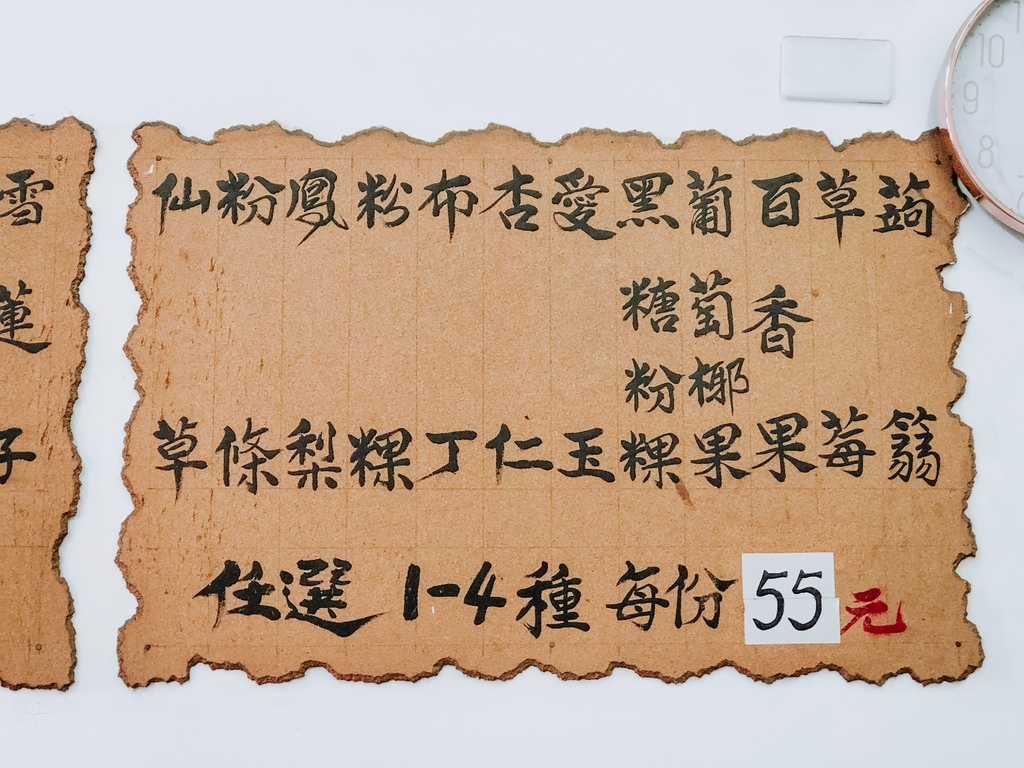 蒟篛
草莓
百香果
葡萄椰果
黑糖粉粿
愛玉
杏仁
布丁
粉粿
鳳梨
粉條
仙草
任選 1-4種 每份55元
雪蓮子
10
9
8